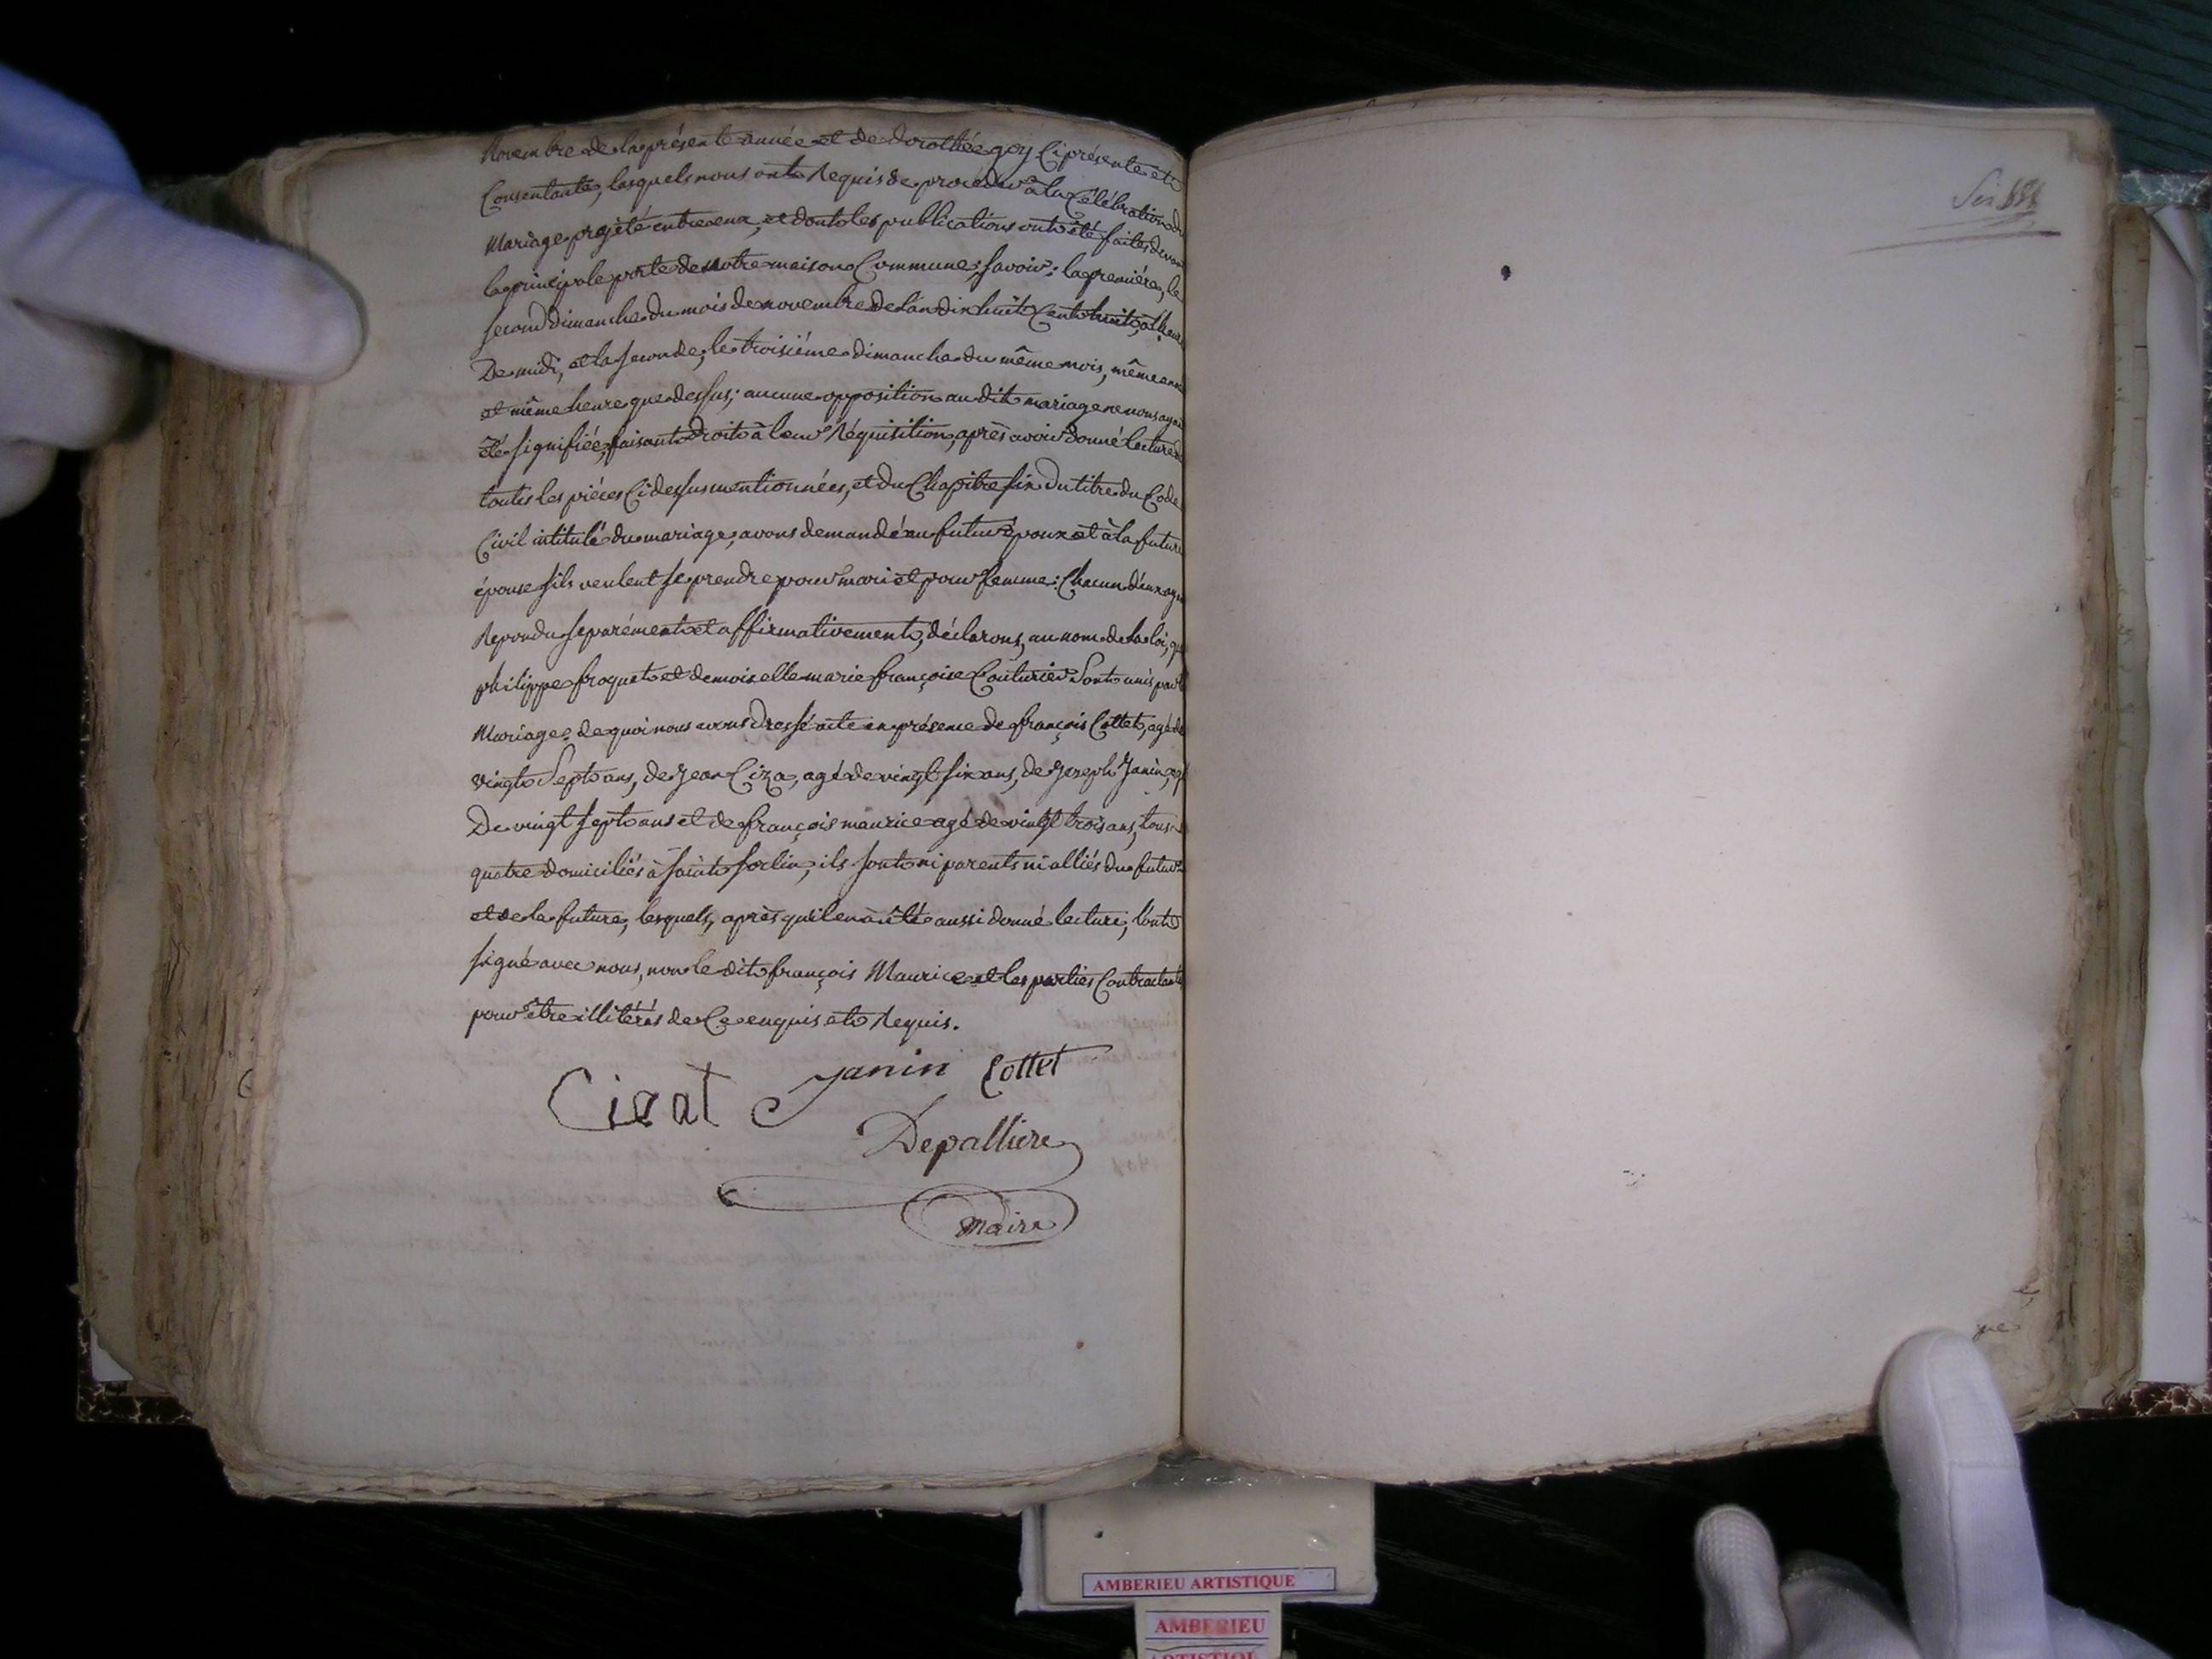 Novembre de la présente année et de dorothée goy Ci présente et
Consentante, lesquels nous ont Requis de procéder à la Célébration du
Mariage projeté entre eux, et dont les publications ont été faites devant
la principale porte de notre maison Commune; savoir: la première, le
second dimanche du mois de novembre de l'an dix huit Cent huit, à l'heure
De midi, et la seconde, le troisième dimanche du même mois, même année
et même heure que dessus; aucune opposition au dit mariage ne nous ayant
été signifiée, faisant droit à leur Réquisition, après avoir donné lecture de
toutes les pièces Ci dessus mentionnées, et du Chapitre six du titre du Code
Civil intitulé du mariage, avons demandé au futur époux et à la future
épouse s'ils veulent se prendre pour mari et pour femme: Chacun d'eux ayant
Repondu séparément et affirmativement, déclarons, au nom de la loi, que
philippe froquet et demoiselle marie françoise Couturier Sont unis par le
Mariage: de quoi nous avons dressé acte en présence de françois Cottet, agé de
vingt Sept ans, de Jean Ciza, agé de vingt six ans, de Joseph Janin, agé
De vingt sept ans et de françois maurice agé de vingt trois ans, tous
quatre domiciliés à saint sorlin, ils sont ni parents ni alliés du futur
et de la future, lesquels, après qu'il en à été aussi donné lecture, l'ont
signé avec nous, non le dit françois Maurice et les parties Contractantes
pour être illitérés de Ce enquis et Requis.
Cizat Janin Cottet
Depalliere
maire
AMBERIEU ARTISTIQUE
AMBERIEU
ARTISTIQUE